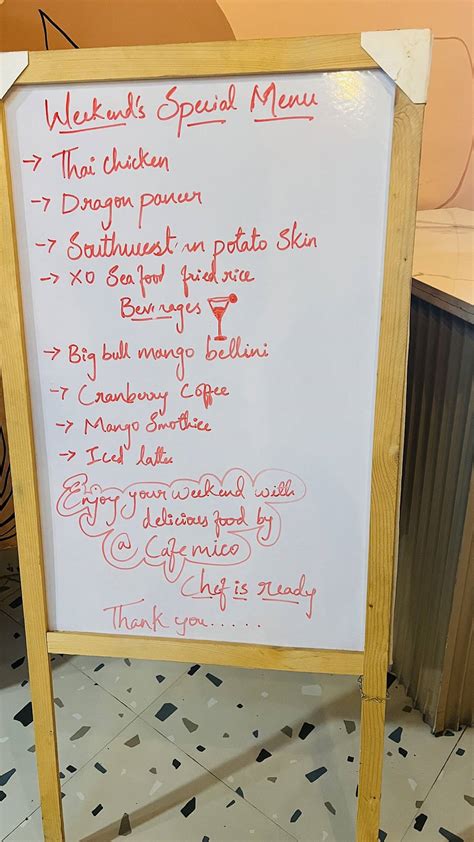 Weekend's Special Menu
→ Thai chicken
→ Dragon paneer
→ Southwest'rn potato Skin
→ XO Seafood fried rice
Beverages
→ Big bull mango bellini
→ Cranberry Coffee
→ Mango Smothiee
→ Iced latte
Enjoy your weekend with
delicious food by
@ Cafe mico
Chef is ready
Thank you.....